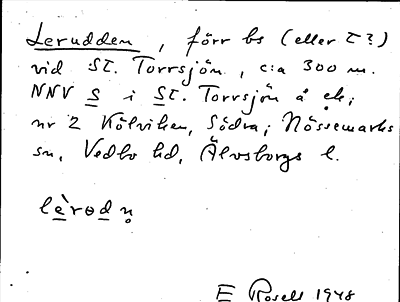 Lerudden, förr bs (eller t?)
vid St. Torrsjön, c:a 300 m.
NNV S i St. Torrsjön å ek;
nr 2 Kölviken, Södra; Nössemarks
sn, Vedbo hd, Älvsborgs l.
lèrodn̥
E Rosell 1948